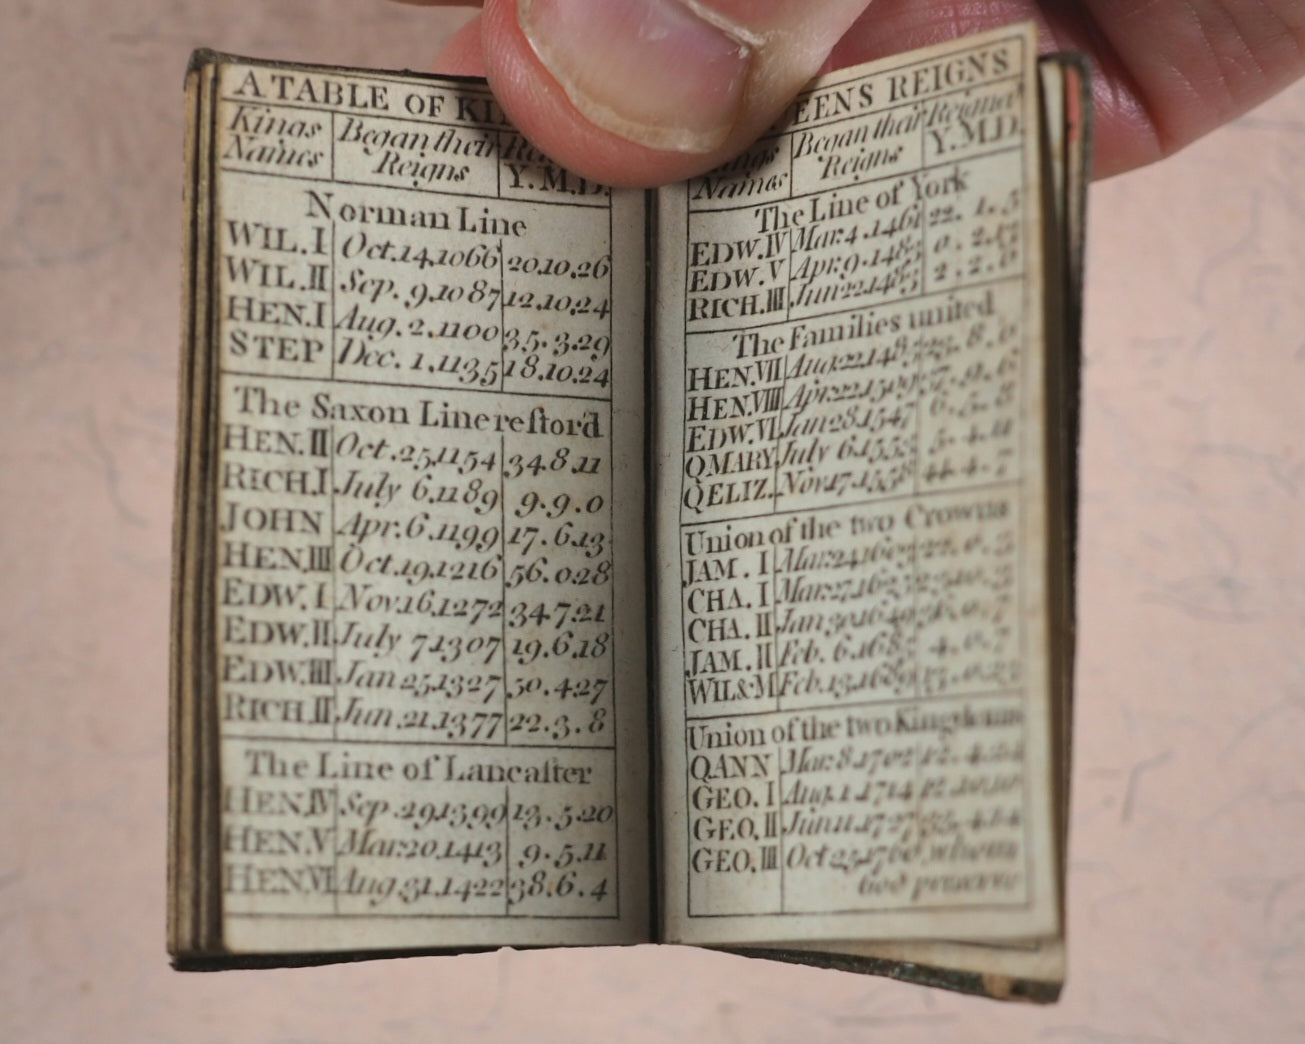 A TABLE OF KI
Kings Names Began their Reigns Y.M.D.
Norman Line
WIL.I Oct.14.1066 20.10.26
WIL.II Sep. 9.1087 12.10.24
HEN.I Aug. 2.1100 35.3.29
STEP Dec. 1.1135 18.10.24
The Saxon Line reſtor'd
HEN.II Oct.25.1154 34.8.11
RICH.I July 6.1189 9.9.0
JOHN Apr.6.1199 17.6.13
HEN.III Oct.19.1216 56.0.28
EDW.I Nov.16.1272 34.7.21
EDW.II July 7.1307 19.6.18
EDW.III Jan 25.1327 50.4.27
RICH.II Jun.21.1377 22.3.8
The Line of Lancaſter
HEN.IV Sep.29.1399 13.5.20
HEN.V Mar.20.1413 9.5.11
HEN.VI Aug.31.1422 38.6.4
EENS REIGNS
Names Began their Reigns Reigned Y.M.D.
The Line of York
EDW.IV Mar.4.1461 22.1.5
EDW.V Apr.9.1483
RICH.III Jun 22.1483 2.2.0
The Families united
HEN.VII Aug.22.1485
HEN.VIII Apr.22.1509
EDW.VI Jan 28.1547
QMARY July 6.1553
QELIZ. Nov.17.1558 44.4.7
Union of the two Crowns
JAM. I Mar.24.1603
CHA. I Mar.27.1625
CHA. II Jan 30.1649
JAM. II Feb. 6.1685
WIL&M Feb.13.1689
Union of the two Kingdoms
QANN Mar.8.1702
GEO. I Aug.1.1714
GEO. II Jun.11.1727
GEO. III Oct 25.1760 whom
God preserve